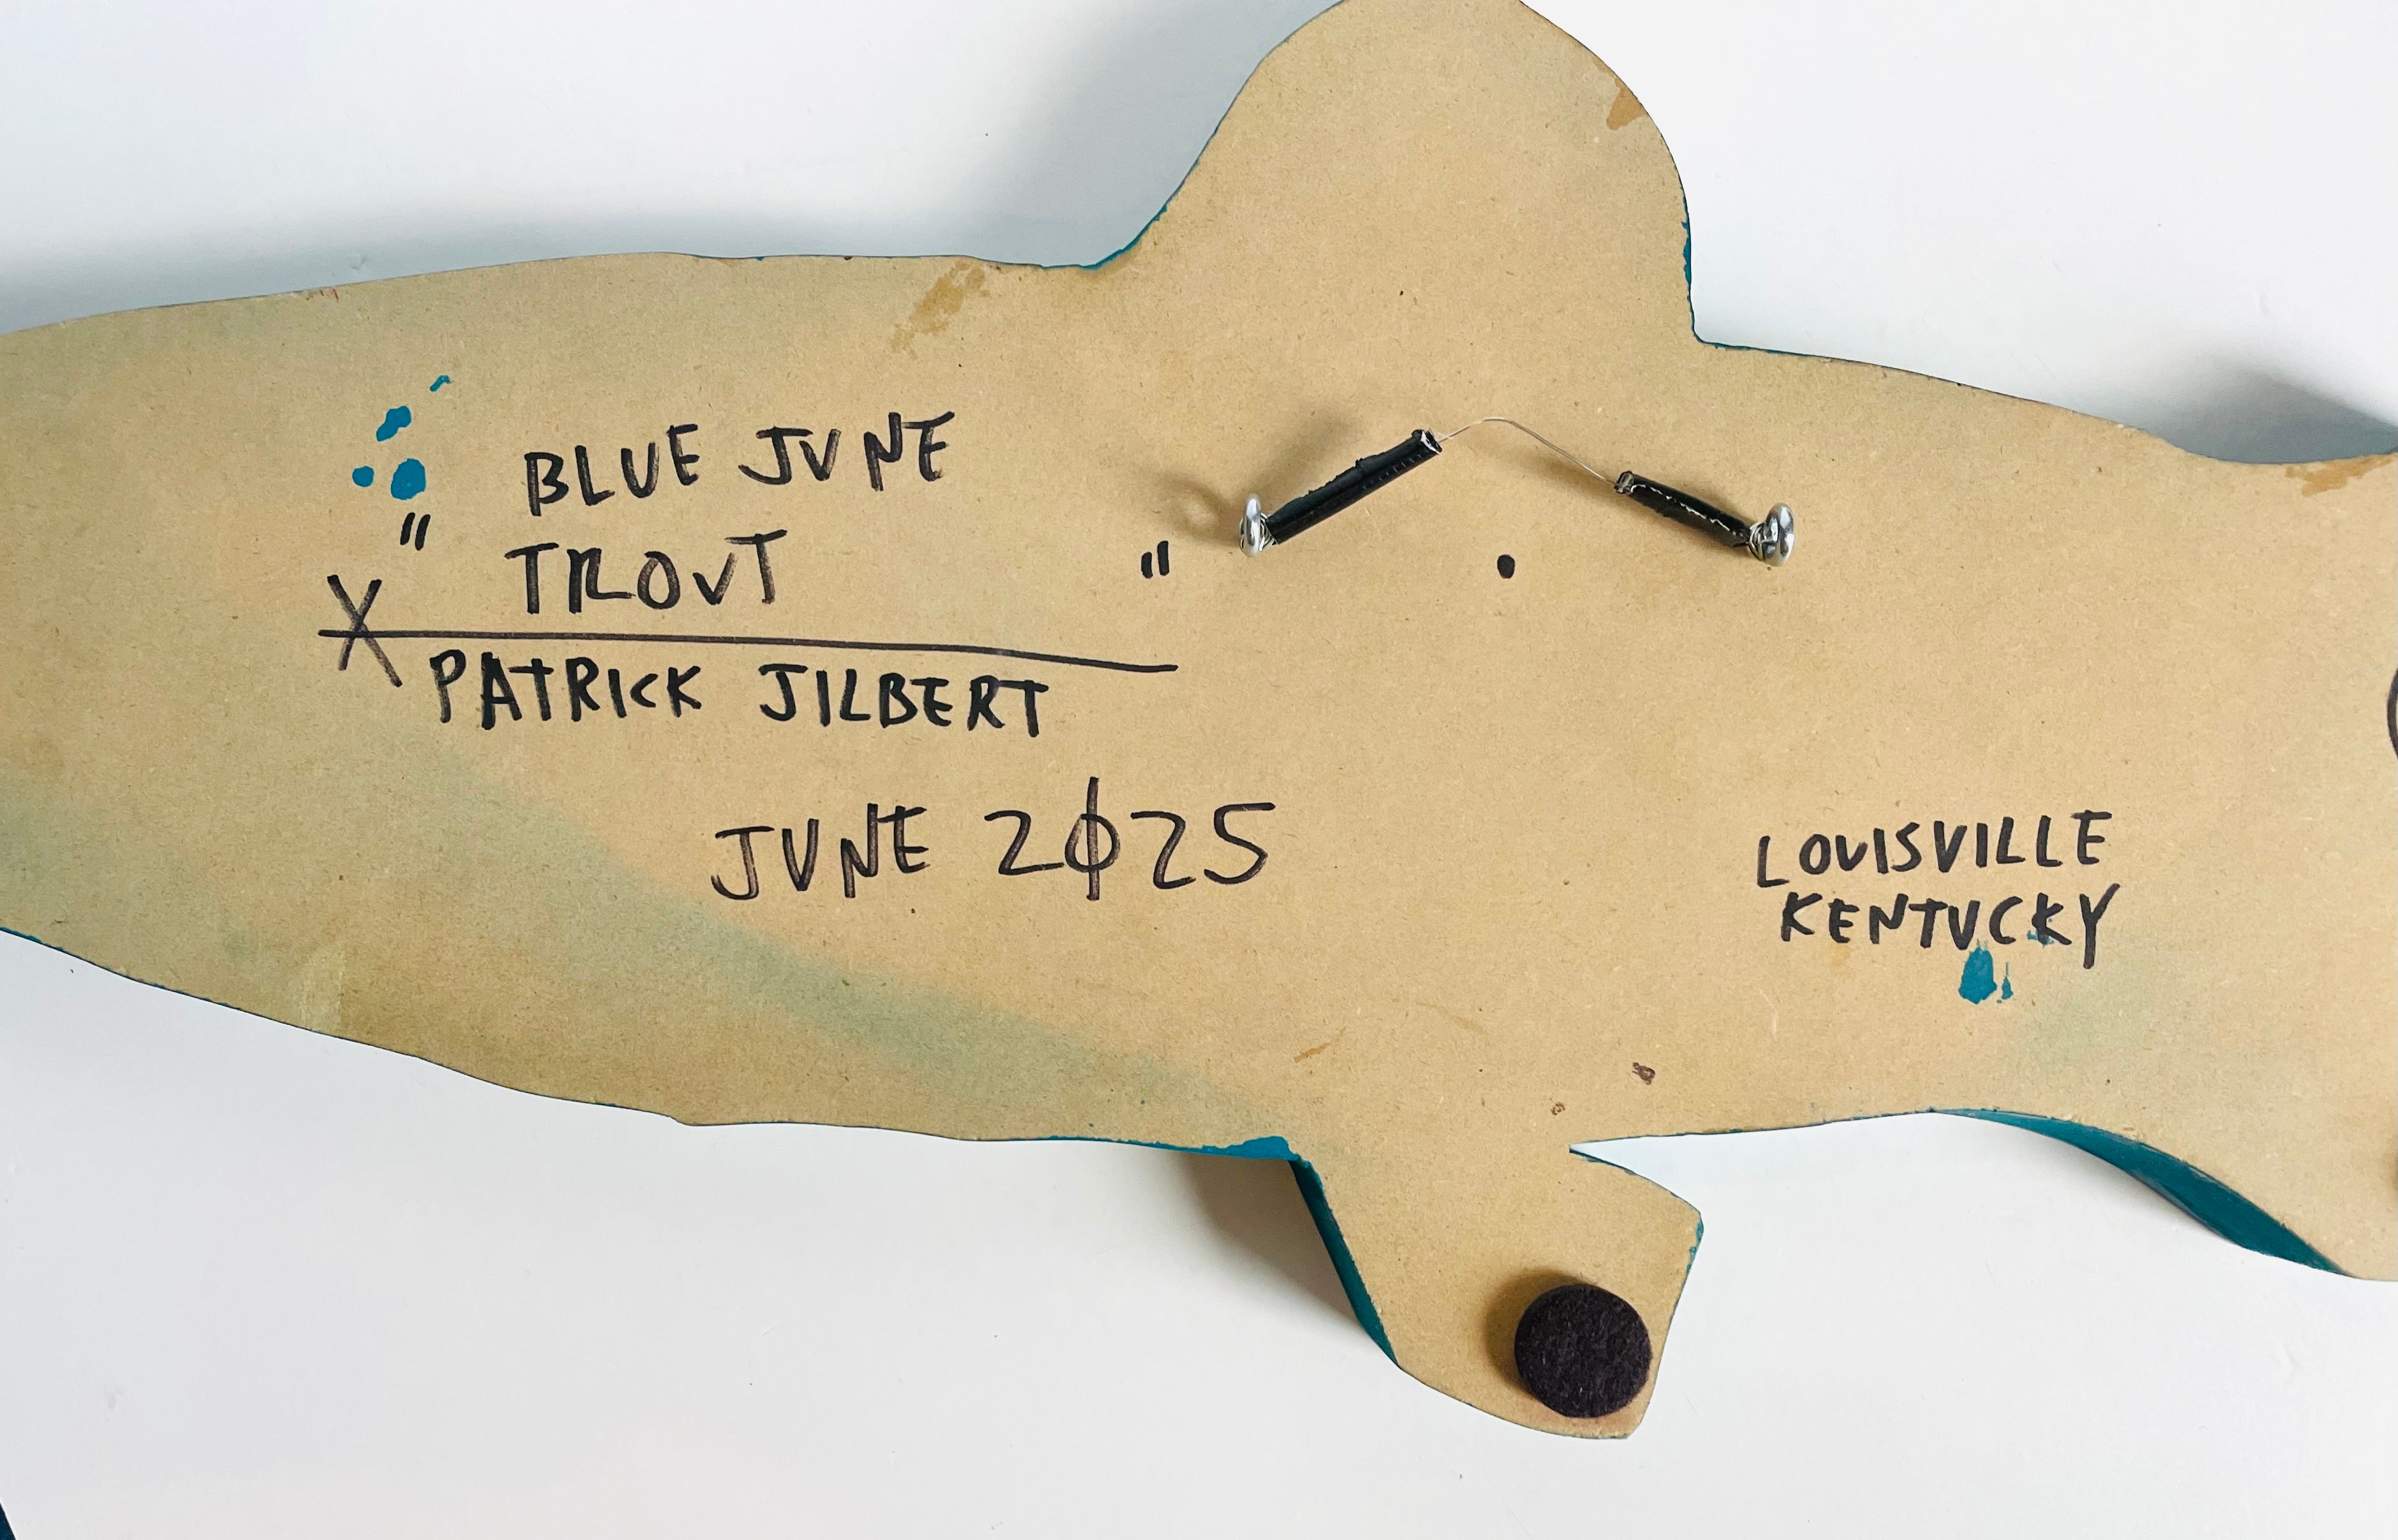 BLUE JUNE
" TROUT "
X
PATRICK JILBERT
JUNE 2025
LOUISVILLE
KENTUCKY